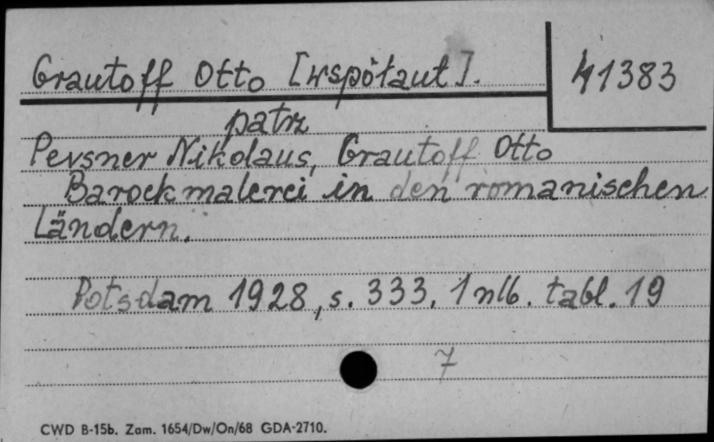 Grautoff Otto [współaut].
41383
patrz
Pevsner Nikolaus, Grautoff Otto
Barockmalerei in den romanischen
Ländern.
Potsdam 1928, s. 333, 1 nlb. tabl. 19
7
CWD B-15b. Zam. 1654/Dw/On/68 GDA-2710.